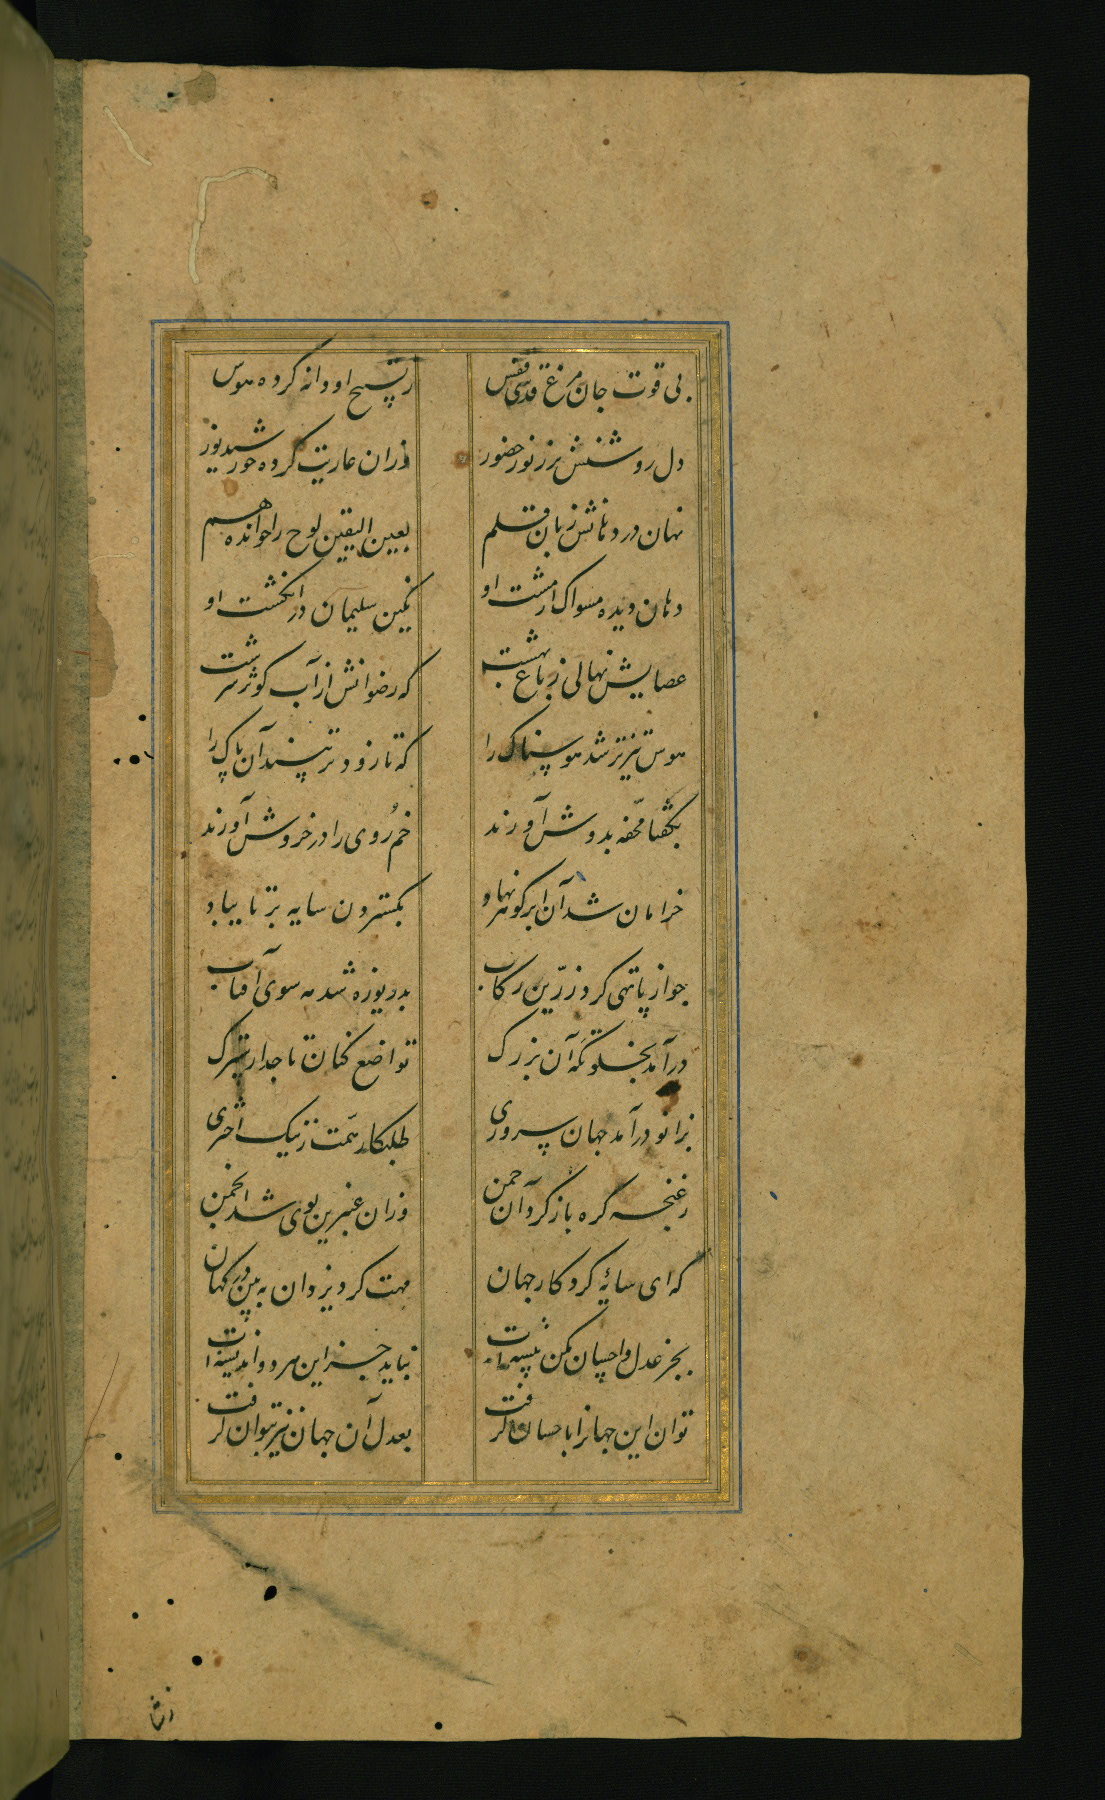 بی قوت جان مرغ قدسی قفس ز تسبیح او دانه کرده هوس
دل روشنش برز نور حضور وزان عاریت کرده خورشید نور
نهان در دهانش زبان قلم بعین الیقین لوح را خوانده هم
دهان دیده مسواک از مشت او نگین سلیمان در انگشت او
عصایش نهالی ز باغ بهشت که رضوانش از آب کوثر سرشت
هوس تیزتر شد هوسناک را که تا زودتر بیند آن پاک را
بگفتا محفه بدوش آورند خم روی را در خروش آورند
خرامان شد آن ابر گوهر نهاد بگستردن سایه بر
چو از پا تهی کرد زرین رکاب بدریوزه شد مه سوی آفتاب
درآمد بخلوتگه آن بزرگ تواضع کنان تاجدار سترک
بزانو درآمد جهان پروری طلبکار همت ز نیک اختری
ز غنچه گره باز کرد آن چمن وزان عنبرین بوی شد انجمن
که ای سایهٔ کردکار جهان مهت کرد یزدان به بین در کهان
بجز عدل و احسان مکن پیشه‌ات نباید جز این هر دو اندیشه‌ات
توان این جهانرا باحسان گرفت بعدل آن جهان نیز بتوان گرفت